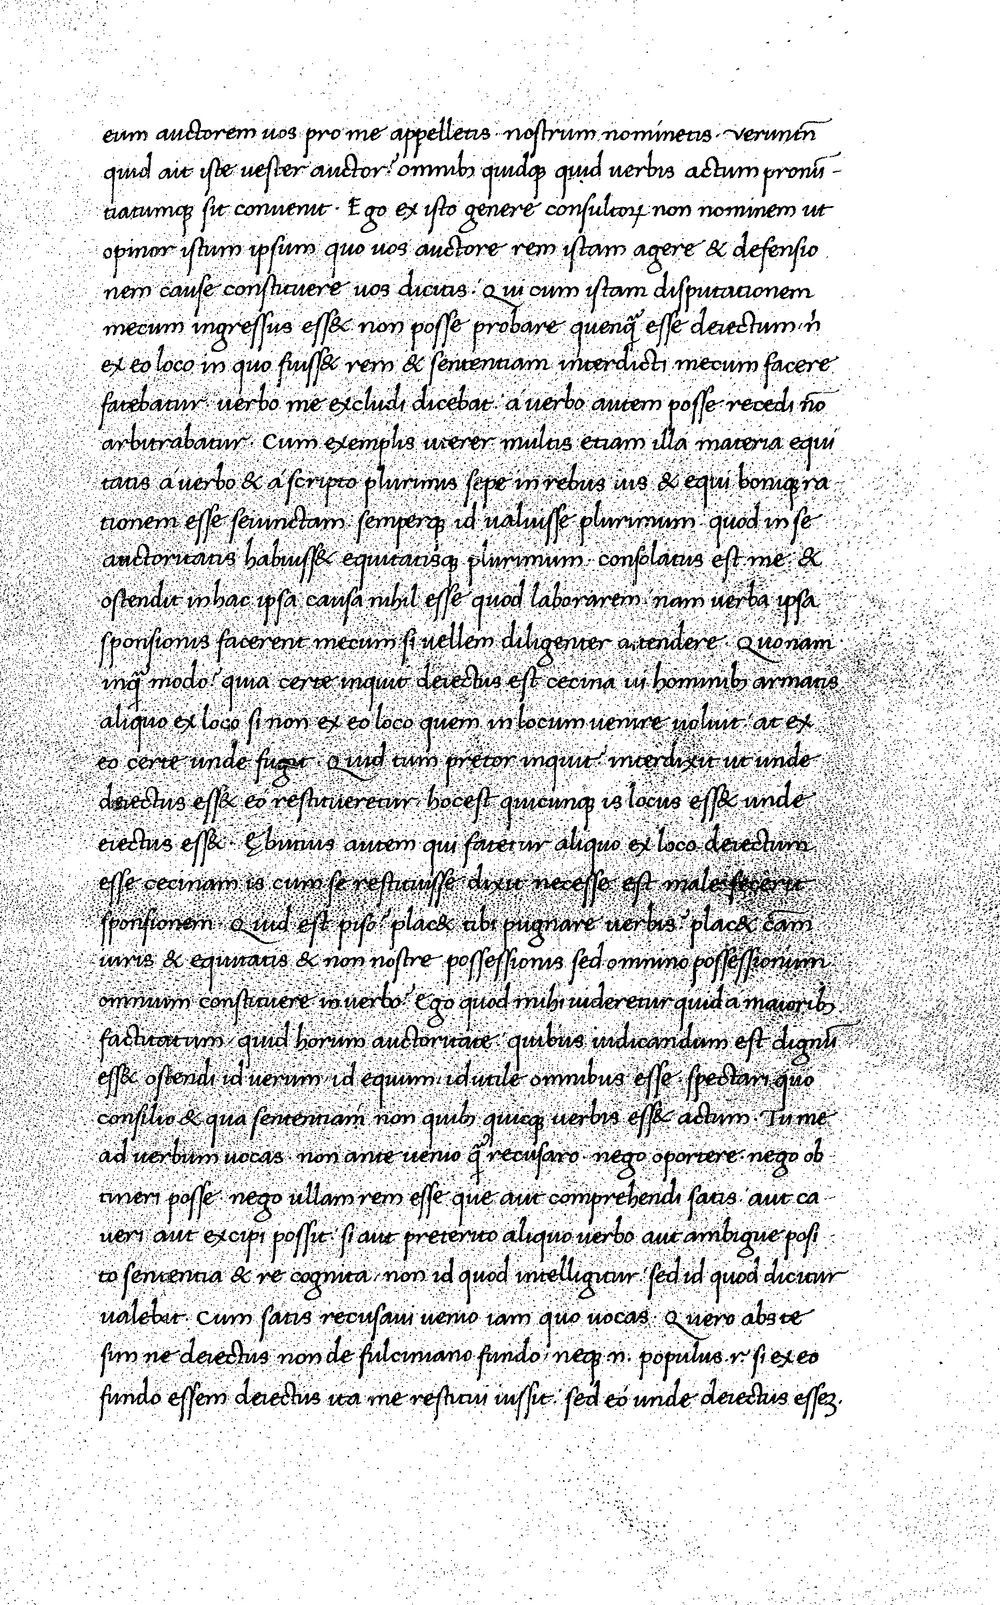 eum auctorem uos pro me appelletis · nostrum nominetis · verumtn̄
quid ait iste uester auctor? omnibꝫ quidqꝫ quid verbis actum pronū-
tiatumqꝫ sit conuenit · Ego ex isto genere consultoꝝ non nominem ut
opinor istum ipsum quo uos auctore rem istam agere & defensio
nem cause constituere uos dicitis · Qui cum istam disputationem
mecum ingressus ess& non posse probare quenq̄ esse deiectum · n̄
ex eo loco in quo fuiss& rem & sententiam interdicti mecum facere
fatebatur · verbo me excludi dicebat · a uerbo autem posse recedi n̄o
arbitrabatur · Cum exemplis uterer multis etiam illa materia equi
tatis a uerbo & a scripto plurimis sepe in rebus ius & equi boniqꝫ ra
tionem esse seiunctam · semperqꝫ id ualuisse plurimum · quod in se
auctoritatis habuiss& equitatisqꝫ plurimum · consolatus est me · &
ostendit in hac ipsa causa nihil esse quod laborarem · nam verba ipsa
sponsionis facerent mecum si uellem diligenter attendere · Quonam
inq̄ modo? quia certe inquit deiectus est cecina ui hominibꝫ armatis
aliquo ex loco si non ex eo loco quem in locum uenire uoluit · at ex
eo certe unde fugit · Quid tum pretor inquit? interdixit ut unde
deiectus ess& eo restitueretur · hoc est quicunqꝫ is locus ess& unde
eiectus ess& · Ębutius autem qui fatetur aliquo ex loco deiectum
esse cecinam is cum se restituisse dixit necesse est male fecerit
sponsionem · Quid est piso? plac& tibi pugnare verbis? plac& cām
iuris & equitatis & non nostre possessionis sed omnino possessionum
omnium constituere in uerbo? Ego quod mihi uideretur quid a maioribꝫ
factitatum · quid horum auctoritate · quibus iudicandum est dignū
ess& ostendi id verum · id equum · id utile omnibus esse · spectari quo
consilio & qua sententiam non quibꝫ quicqꝫ verbis ess& actum · Tu me
ad verbum uocas · non ante uenio q̄ recusaro · nego oportere · nego ob
tineri posse · nego ullam rem esse que aut comprehendi satis · aut ca
ueri aut excipi possit · si aut preterito aliquo uerbo aut ambigue posi
to sententia & re cognita · non id quod intelligitur · sed id quod dicitur
ualebit · Cum satis recusaui uenio iam quo uocas · Quero abs te
sim ne deiectus non de fulciniano fundo · neqꝫ n. populus .r. si ex eo
fundo essem deiectus ita me restitui iussit · sed eo unde deiectus esseꝫ ·